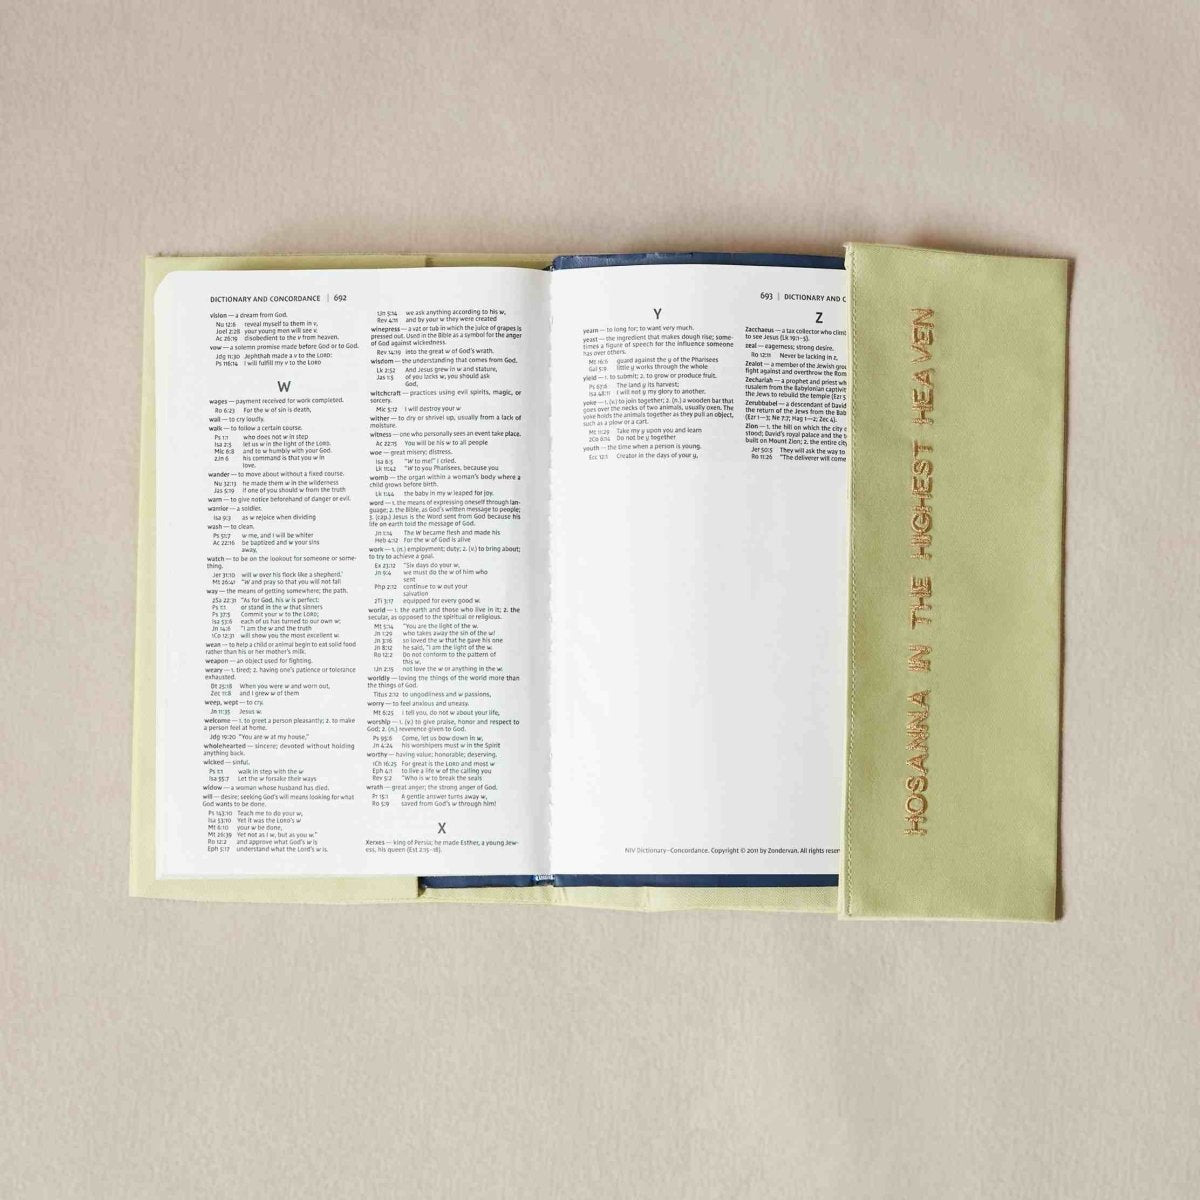 DICTIONARY AND CONCORDANCE | 692
vision — a dream from God.
Nu 12:6 reveal myself to them in v,
Joel 2:28 your young men will see v.
Ac 26:19 disobedient to the v from heaven.
vow — a solemn promise made before God or to God.
Jdg 11:30 Jephthah made a v to the LORD:
Ps 116:14 I will fulfill my v to the LORD
W
wages — payment received for work completed.
Ro 6:23 For the w of sin is death,
wail — to cry loudly.
walk — to follow a certain course.
Ps 1:1 who does not w in step
Isa 2:5 let us w in the light of the LORD.
Mic 6:8 and to w humbly with your God.
2Jn 6 his command is that you w in
love.
wander — to move about without a fixed course.
Nu 32:13 he made them w in the wilderness
Jas 5:19 if one of you should w from the truth
warn — to give notice beforehand of danger or evil.
warrior — a soldier.
Isa 9:3 as w rejoice when dividing
wash — to clean.
Ps 51:7 w me, and I will be whiter
Ac 22:16 be baptized and w your sins
away,
watch — to be on the lookout for someone or some-
thing.
Jer 31:10 will w over his flock like a shepherd.'
Mt 26:41 "W and pray so that you will not fall
way — the means of getting somewhere; the path.
2Sa 22:31 "As for God, his w is perfect:
Ps 1:1 or stand in the w that sinners
Ps 37:5 Commit your w to the LORD;
Isa 53:6 each of us has turned to our own w;
Jn 14:6 "I am the w and the truth
1Co 12:31 will show you the most excellent w.
wean — to help a child or animal begin to eat solid food
rather than his or her mother's milk.
weapon — an object used for fighting.
weary — 1. tired; 2. having one's patience or tolerance
exhausted.
Dt 25:18 When you were w and worn out,
Zec 11:8 and I grew w of them
weep, wept — to cry.
Jn 11:35 Jesus w.
welcome — 1. to greet a person pleasantly; 2. to make
a person feel at home.
Jdg 19:20 "You are w at my house,"
wholehearted — sincere; devoted without holding
anything back.
wicked — sinful.
Ps 1:1 walk in step with the w
Isa 55:7 Let the w forsake their ways
widow — a woman whose husband has died.
will — desire; seeking God's will means looking for what
God wants to be done.
Ps 143:10 Teach me to do your w,
Isa 53:10 Yet it was the LORD's w
Mt 6:10 your w be done,
Mt 26:39 Yet not as I w, but as you w."
Ro 12:2 and approve what God's w is
Eph 5:17 understand what the Lord's w is.
1Jn 5:14 we ask anything according to his w,
Rev 4:11 and by your w they were created
winepress — a vat or tub in which the juice of grapes is
pressed out. Used in the Bible as a symbol for the anger
of God against wickedness.
Rev 14:19 into the great w of God's wrath.
wisdom — the understanding that comes from God.
Lk 2:52 And Jesus grew in w and stature,
Jas 1:5 of you lacks w, you should ask
God,
witchcraft — practices using evil spirits, magic, or
sorcery.
Mic 5:12 I will destroy your w
wither — to dry or shrivel up, usually from a lack of
moisture.
witness — one who personally sees an event take place.
Ac 22:15 You will be his w to all people
woe — great misery; distress.
Isa 6:5 "W to me!" I cried.
Lk 11:42 "W to you Pharisees, because you
womb — the organ within a woman's body where a
child grows before birth.
Lk 1:44 the baby in my w leaped for joy.
word — 1. the means of expressing oneself through lan-
guage; 2. the Bible, as God's written message to people;
3. (cap.) Jesus is the Word sent from God because his
life on earth told the message of God.
Jn 1:14 The W became flesh and made his
Heb 4:12 For the w of God is alive
work — 1. (n.) employment; duty; 2. (v.) to bring about;
to try to achieve a goal.
Ex 23:12 "Six days do your w,
Jn 9:4 we must do the w of him who
sent
Php 2:12 continue to w out your
salvation
2Ti 3:17 equipped for every good w.
world — 1. the earth and those who live in it; 2. the
secular, as opposed to the spiritual or religious.
Mt 5:14 "You are the light of the w.
Jn 1:29 who takes away the sin of the w!
Jn 3:16 so loved the w that he gave his one
Jn 8:12 he said, "I am the light of the w.
Ro 12:2 Do not conform to the pattern of
this w,
1Jn 2:15 not love the w or anything in the w.
worldly — loving the things of the world more than
the things of God.
Titus 2:12 to ungodliness and w passions,
worry — to feel anxious and uneasy.
Mt 6:25 I tell you, do not w about your life,
worship — 1. (v.) to give praise, honor and respect to
God; 2. (n.) reverence given to God.
Ps 95:6 Come, let us bow down in w,
Jn 4:24 his worshipers must w in the Spirit
worthy — having value; honorable; deserving.
1Ch 16:25 For great is the LORD and most w
Eph 4:1 to live a life w of the calling you
Rev 5:2 "Who is w to break the seals
wrath — great anger; the strong anger of God.
Pr 15:1 A gentle answer turns away w,
Ro 5:9 saved from God's w through him!
X
Xerxes — king of Persia; he made Esther, a young Jew-
ess, his queen (Est 2:15–18).
693 | DICTIONARY AND C
Y
yearn — to long for; to want very much.
yeast — the ingredient that makes dough rise; some-
times a figure of speech for the influence someone
has over others.
Mt 16:6 guard against the y of the Pharisees
Gal 5:9 little y works through the whole
yield — 1. to submit; 2. to grow or produce fruit.
Ps 67:6 The land y its harvest;
Isa 48:11 I will not y my glory to another.
yoke — 1. (v.) to join together; 2. (n.) a wooden bar that
goes over the necks of two animals, usually oxen. The
yoke holds the animals together as they pull an object,
such as a plow or a cart.
Mt 11:29 Take my y upon you and learn
2Co 6:14 Do not be y together
youth — the time when a person is young.
Ecc 12:1 Creator in the days of your y,
Z
Zacchaeus — a tax collector who climb
to see Jesus (Lk 19:1–5).
zeal — eagerness; strong desire.
Ro 12:11 Never be lacking in z,
Zealot — a member of the Jewish gro
fight against and overthrow the Rom
Zechariah — a prophet and priest wh
rusalem from the Babylonian captivit
the Jews to rebuild the temple (Ezr 5
Zerubbabel — a descendant of David
the return of the Jews from the Bab
(Ezr 1–3; Ne 7:7; Hag 1–2; Zec 4).
Zion — 1. the hill on which the city o
stood; David's royal palace and the t
built on Mount Zion; 2. the entire city
Jer 50:5 They will ask the way to
Ro 11:26 "The deliverer will come
NIV Dictionary–Concordance. Copyright © 2011 by Zondervan. All rights reser
HOSANNA IN THE HIGHEST HEAVEN